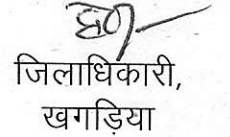 जिलाधिकारी,
खगड़िया